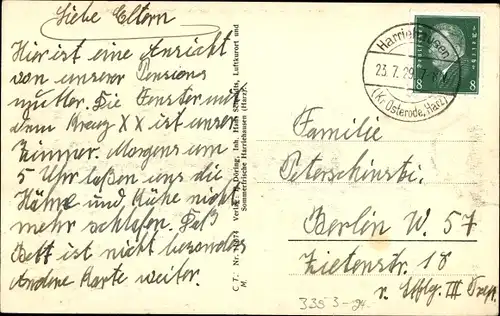 Liebe Eltern
Hier ist eine Ansicht
von unserer Pensions
mutter. Die Fenster mit
dem Kreuz XX ist unser
Zimmer. Morgens um
5 Uhr laßen uns die
Hähne und Kühe nicht
mehr schlafen. Daß
Bett ist nicht besonders
Andere Karte weiter.
Verlag Döring, Inh. Hans Schmidts, Luftkurort und
Sommerfrische Harriehausen (Harz).
C. T. Nr.
M.
Harriehausen
23.7.29
(Kr. Osterode, Harz)
8 8
Familie
Peterschinski
Berlin W. 57
Zietenstr. 18
v. III Trep.
3353